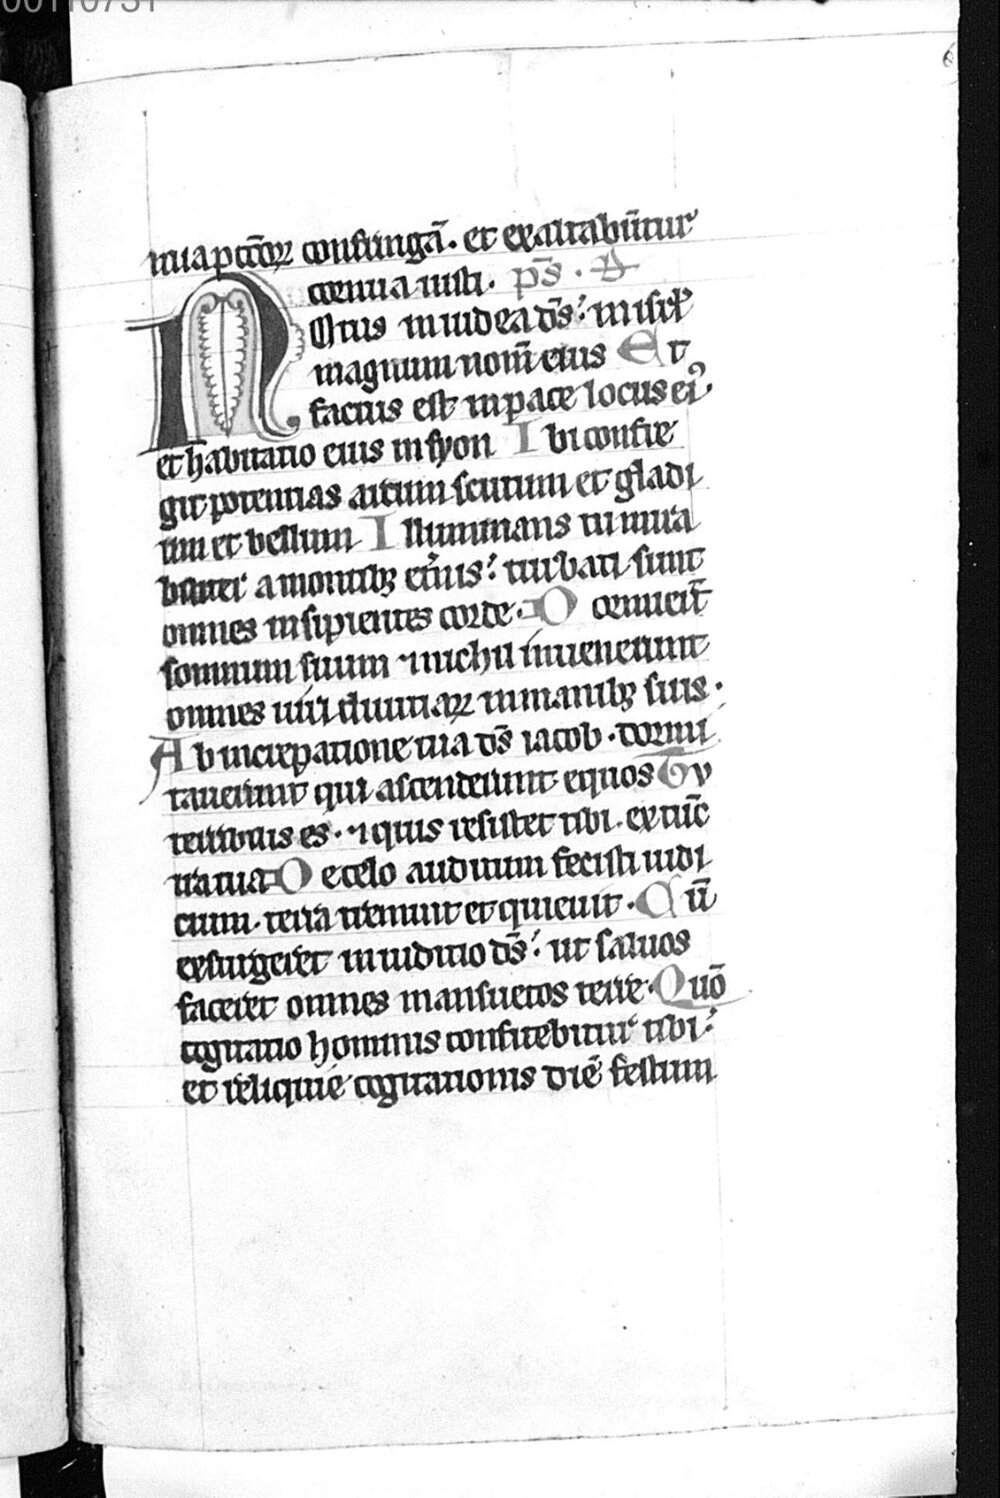 00110731
6
nua pctōꝝ confringā. et exaltabūtur
cornua iusti. ps̄. D
NOtus in iudea ds̄: in isrl̄
magnum nom̄ eius Et
factus est in pace locus eiꝰ
et habitatio eius in syon Ibi confre
git potentias arcum scutum et gladi
um et bellum Illuminans tu mira
biliter a montibꝫ et̄nis: turbati sunt
omnes insipientes corde. Dormier̄t
somnum suum ⁊ nichil inuenerunt
omnes uiri diuitiaꝝ in manibꝫ suis.
Ab increpatione tua ds̄ iacob. dormi
tauerunt qui ascenderunt equos Tu
terribilis es. ⁊ quis resistet tibi. ex tūc
ira tua De celo auditum fecisti iudi
cium. terra tremuit et quieuit. Cū
exsurgeret in iuditio ds̄: ut saluos
faceret omnes mansuetos terre. Quō
cogitatio hominis confitebitur tibi:
et reliquie cogitationis diē festum